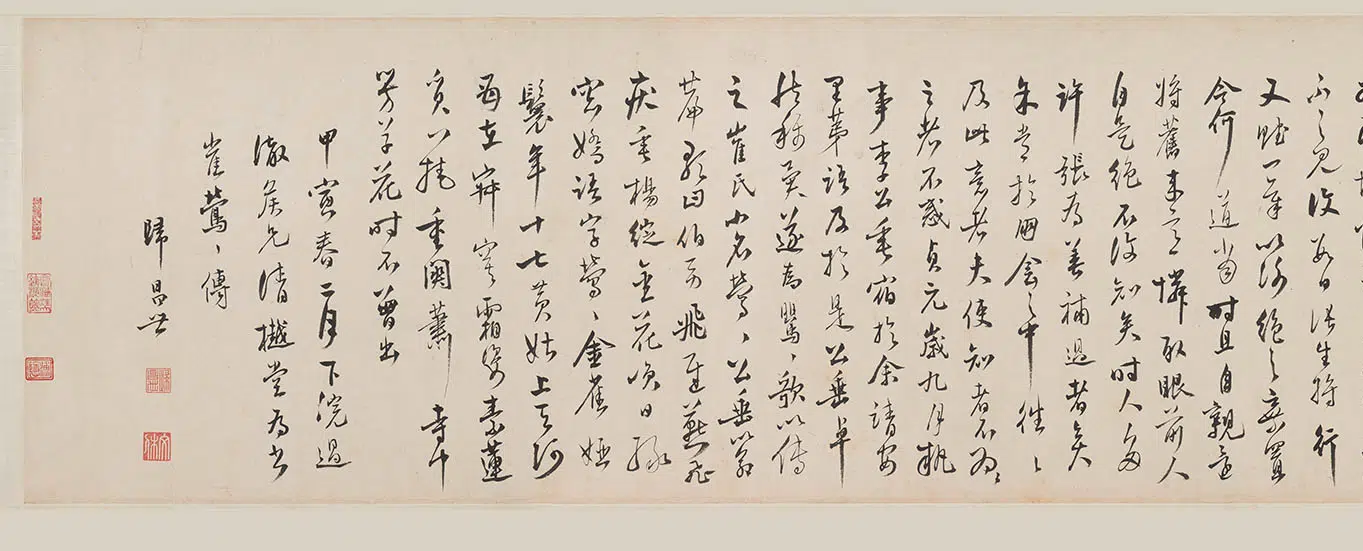 不之見後數日張生將行
又賦一章以謝絕之棄置
今何道當時且自親還
將舊來意憐取眼前人
自是絕不復知矣時人多
許張為善補過者矣
余嘗於朋會之中往往
及此意者夫使知者不為、
之者不惑貞元歲九月執
事李公垂宿於余靖安
里第語及於是公垂卓
然稱異遂為鶯、歌以傳
之崔氏小名鶯、公垂以命
篇歌曰伯勞飛遲燕飛
疾垂楊綻金花笑日綠
窗嬌語字鶯、金雀婭
鬟年十七黃姑上天阿
母在寂寞霜姿素蓮
質門掩重關蕭寺中
芳草花時不曾出
甲寅春二月下浣過
澂侯兄清樾堂為書
崔鶯、傳
歸昌世